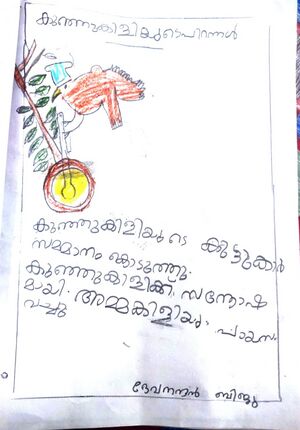 കുഞ്ഞുകിളിയുടെപിറന്നാൾ
കുഞ്ഞുകിളിയുടെ കൂട്ടുകാർ
സമ്മാനം കൊടുത്തു.
കുഞ്ഞുകിളിക്ക് സന്തോഷ
മായി. അമ്മകിളിയും, പായസം
വച്ചു
ദേവനന്ദൻ ബിജു